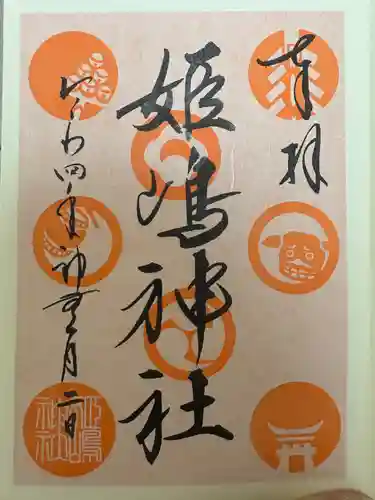 奉拝
姫嶋神社
四年神無月二日
姫嶋
神社